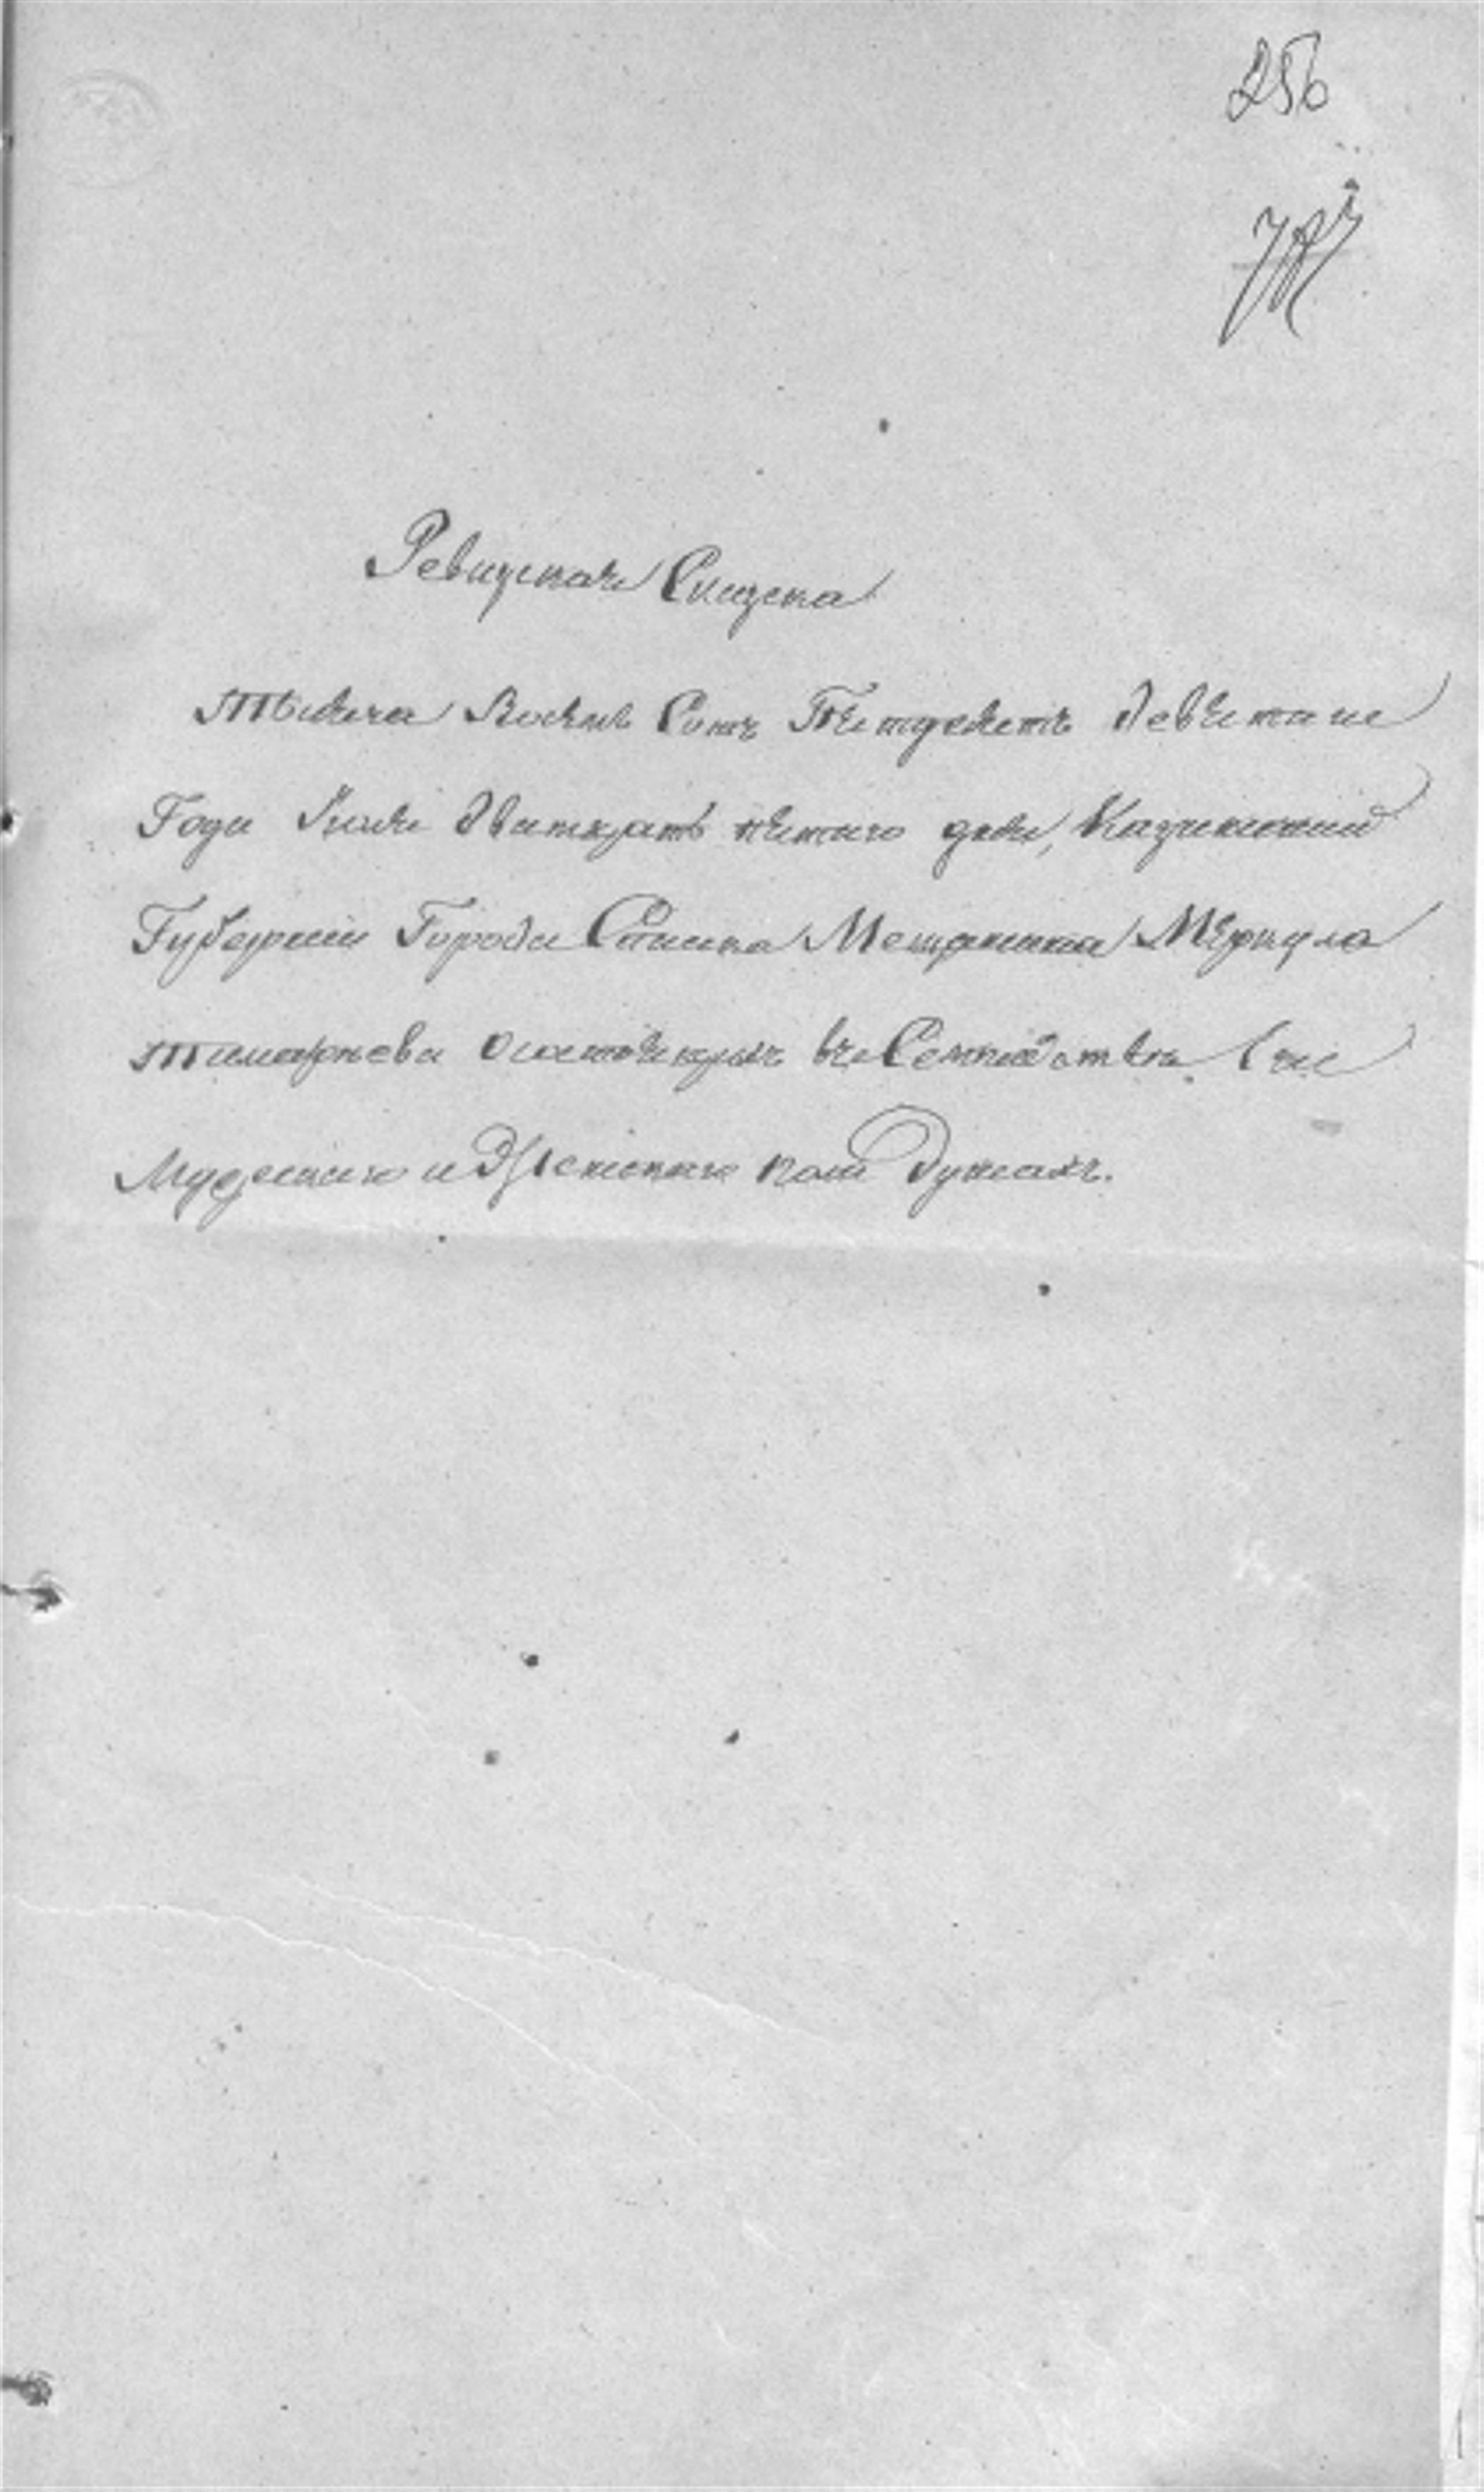 256
Ревизская Сказка
Тысяча Восемь Сотъ Петдесетъ девятаго
Года Июля дватцать пятаго дня, Казанской
Губернии Города Спаска Мещанина Меркула
о состоящихъ въ Семействе Его
Мужеска и Женска пола Душахъ.